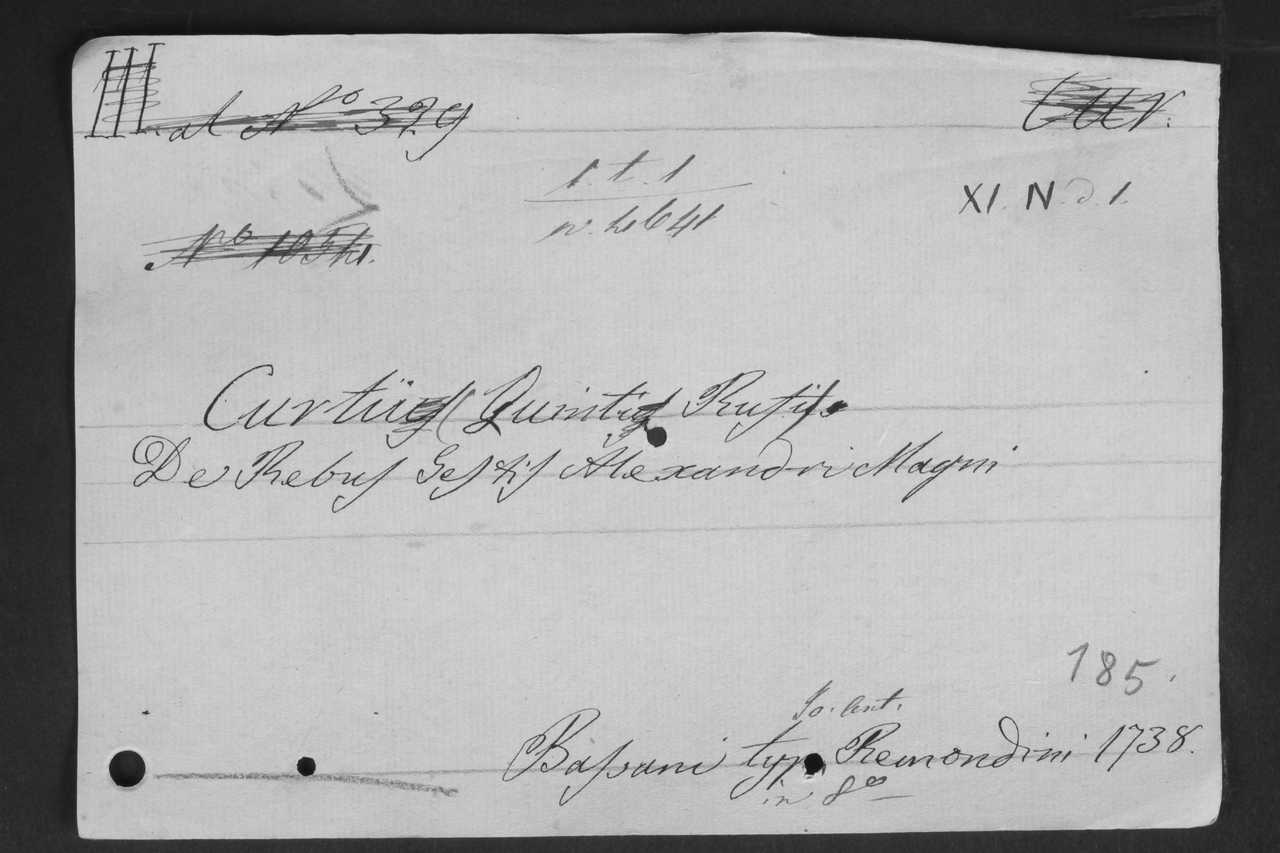 III. al Nº 379
Cur.
1. t. 1
XI. N. d. 1.
n. 4641
Nº 1054.
Curtii Quinti Rufi.
De Rebus Gestis Alexandri Magni
185.
Jo. Ant.
Bassani typ. Remondini 1738.
in 8º